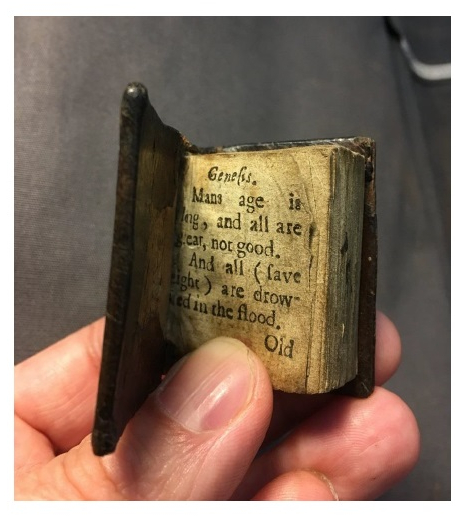 Geneſis.
Mans age is
and all are
not good.
And all (ſave
eight) are drow-
ed in the flood.
Old